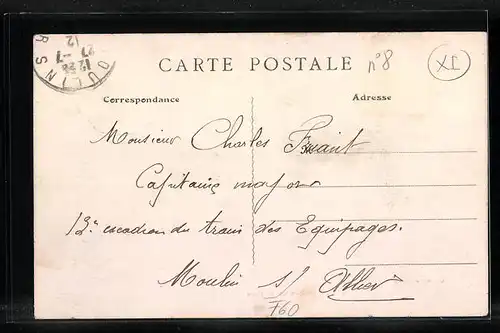 CARTE POSTALE
n°8
XL
Correspondance
Adresse
Monsieur Charles
Capitaine major
13e escadron du train des Equipages.
Moulin s/ Allier
F60